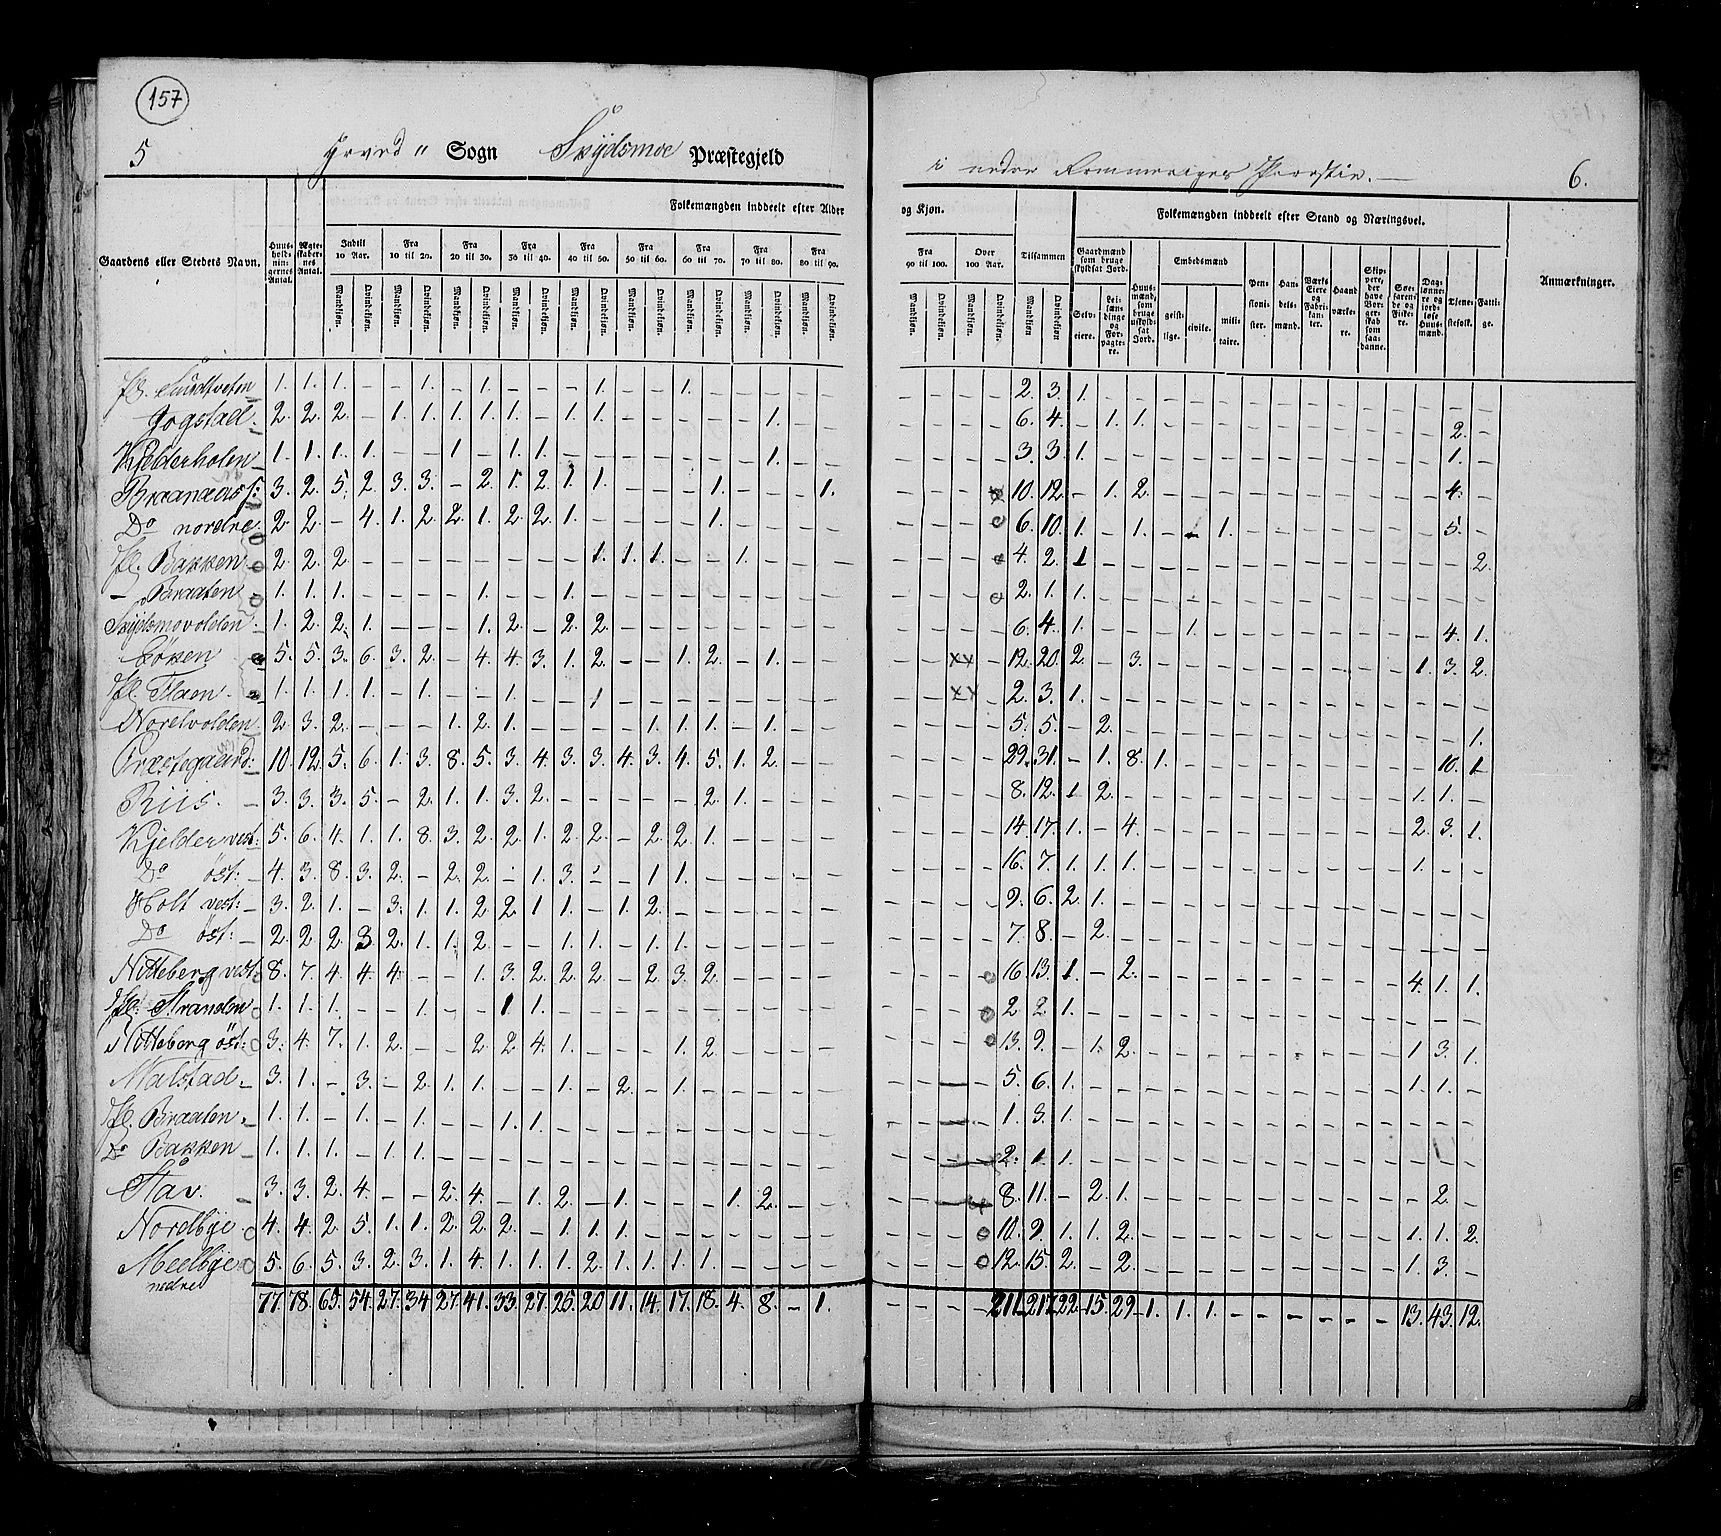 157
5 Sogn Skydsmoe Præstegjeld i nedre Rommeriges Provstie. — 6.
Folkemængden inddeelt efter Alder og Kjøn. Folkemængden inddeelt efter Stand og Næringsvei.
Gaardens eller Stedets Navn. Huusholdningernes Antal. Ægteskabernes Antal. Indtil 10 Aar. Fra 10 til 20. Fra 20 til 30. Fra 30 til 40. Fra 40 til 50. Fra 50 til 60. Fra 60 til 70. Fra 70 til 80. Fra 80 til 90. Fra 90 til 100. Over 100 Aar. Tilsammen Gaardmænd som bruge skyldsat Jord. Huusmænd, som bruge uskyldsat Jord. Embedsmænd Pensionister. Handelsmænd. Værks Eiere og Fabrikanter. Haandværkere. Skippere, der have Borgerskab som saadanne. Søefarende og Fiskere. Daglønnere og jordløse Huusmænd. Tjenestefolk. Fattige. Anmærkninger.
Mandkjøn. Qvindekjøn. Mandkjøn. Qvindekjøn. Mandkjøn. Qvindekjøn. Mandkjøn. Qvindekjøn. Mandkjøn. Qvindekjøn. Mandkjøn. Qvindekjøn. Mandkjøn. Qvindekjøn. Mandkjøn. Qvindekjøn. Mandkjøn. Qvindekjøn. Mandkjøn. Qvindekjøn. Mandkjøn. Qvindekjøn. Mandkjøn Qvindekjøn Selveiere. Leilændinge og Forpagtere. geistlige. civile. militaire.
1. 1. 1. — — 1. — 1. — — — 1. — — 1. — — — — — — — — — 2. 3. 1. — — — — — — — — — — — — — — —
Jogstad. 2. 2. 2. — 1. 1. 1. 1. 1. — 1. 1. — — — — — 1. — — — — — — 6. 4. — 1. 1. — — — — — — — — — — — 2. —
Kjelderholen 1. 1. 1. 1. — — 1. — 1. 1. — — — — — — — 1. — — — — — — 3. 3. 1. — — — — — — — — — — — — — 1. —
Braanaas s: 3. 2. 5. 2. 3. 3. — 2. 1. 2. 1. 1. — — — 1. — — — 1. — — — 10. 12. — 1. 2. — — — — — — — — — — — 4. —
Do nordre 2. 2. — 4. 1. 2. 2. 1. 2. 2. 1. — — — — 1. — — — — — — — 6. 10. 1. — 1. — — 1. — — — — — — — — 5. —
Pl. Bakken 2. 2. 2. — — — — — — — — 1. 1. 1. — — 1. — — — — — — 4. 2. 1 — — — — — — — — — — — — — — 2.
— Braaten 1. 1. 1. — — — — 1. — — 1. — — — — — — — — — — — — 2. 1. 1. — — — — — — — — — — — — — — —
Skydsmovolden 1. 2. 2. 1. — — — 1. 2. — 2. 2. — — — — — — — — — — — — 6. 4. 1. — — — 1. — — — — — — — — 4. 1.
Løken 5. 5. 3. 6. 3. 2. — 4. 4. 3. 1. 2. — — 1. 2. — 1. — — — — xx — 12. 20. 2. — 3. — — — — — — — — — — 1. 3. 2.
Pl. Flaen 1. 1. 1. 1. — 1. — — 1. — — 1 — — — — — — — — — — xx — 2. 3. 1. — — — — — — — — — — — — — — —
Nordvolden 2. 3. 2. — — — 1. 2. 1. — — — — 1. 1. 1. — 1. — — — — — — 5. 5. — 2. — — — — — — — — — — — — — 1.
Præstegaard: 10. 12. 5. 6. 1. 3. 8. 5. 3. 4. 3. 3. 4. 3. 4. 5. 1. 2. — — — — — — 29. 31. — 1. 8. 1. — — — — — — — — — — 10. 1
Riis. — 3. 3. 3. 5. — 2. 1. 1. 3. 2. — — — — — 2. 1. — — — — — — — 8. 12. 1 2. — — — — — — — — — — — 1. 1. —
Kjelder vest: 5. 6. 4. 1. 1. 8. 3. 2. 2. 1. 2. 2. — 2. 2. 1. — — — — — — — — 14. 17. 1. — 4. — — — — — — — — — — 2. 3. 1.
Do öst: — 4. 3. 8. 3. 2. — 2. 2. — 1. 3. — — 1. 1. — — — — — — — — — 16. 7. 1. 1. 1. — — — — — — — — — — 1. — —
Holt vest: — 3. 2. 1. — 3. 1. 1. 2. 2. 1 1. — 1. 2. — — — — — — — — — — 9. 6. 2. 1. — — — — — — — — — — — — — —
Do öst: — 2. 2. 2. 3. 2. 1. 1. 2. — — 1. 1. — 1. 1. — — — — — — — — — 7. 8. — 2. — — — — — — — — — — — — — —
Nitteberg vest 8. 7. 4. 4. 4. — — 1. 3. 2. 2. 2. — 2. 3. 2. — — — — — — — 16. 13. 1. — 2. — — — — — — — — — — 4. 1. 1.
Pl: Stranden 1. 1. 1. — — 1. — — 1 1. — — — — — — — — — — — — — 2 2. 1. — — — — — — — — — — — — — — —
Nitteberg öst: 3. 4. 7. 1. 2. — — 2. 2. 4. 1. — — — 1. 2. — — — — — — — 13. 9. — 1. 2. — — — — — — — — — — 1. 3. 1.
Malstad — 3. 1. — 3. — 2. 1. 1. — — 1. — 2. — 1. — — — — — — — — — 5. 6. 1. — — — — — — — — — — — — 1. 1. —
Pl. Braaten 1. 1. — 1. — 1. — — 1. 1. — — — — — — — — — — — — — — 1. 3. 1. — — — — — — — — — — — — — — —
Do Bakken 1. 1. 1. — 1. 1. — — — — — — — — — — — — — — — — — — 2. 1 1. — — — — — — — — — — — — — — —
Stav. 3. 3. 2. 4. — — 2. 4. — 1. 2. — 1. — — — 1. 2. — — — — — — 8. 11. — 2. 1. — — — — — — — — — — — 2. —
Nordbye 4. 4. 2. 5. 1. 1. 2. 2. 2. — 1. 1. 1. — — — — — — — — — — 10. 9. 1. 1. 2. — — — — — — — — — — 1. 1. 2.
Meelbye nedre 5. 6. 5. 3. 2. 3. 1. 4. 1. 1. 1. 2. 1. 1. 1. 1. — — — — — — — 12. 15. 2. — 2. — — — — — — — — — — 1. 3. —
77. 78. 65. 54. 27. 34. 27. 41. 33. 27. 25. 20. 11. 14. 17. 18. 4. 8. — 1. — — — — 211. 217. 22. 15. 29. 1. 1. 1. — — — — — — 13. 43. 12.